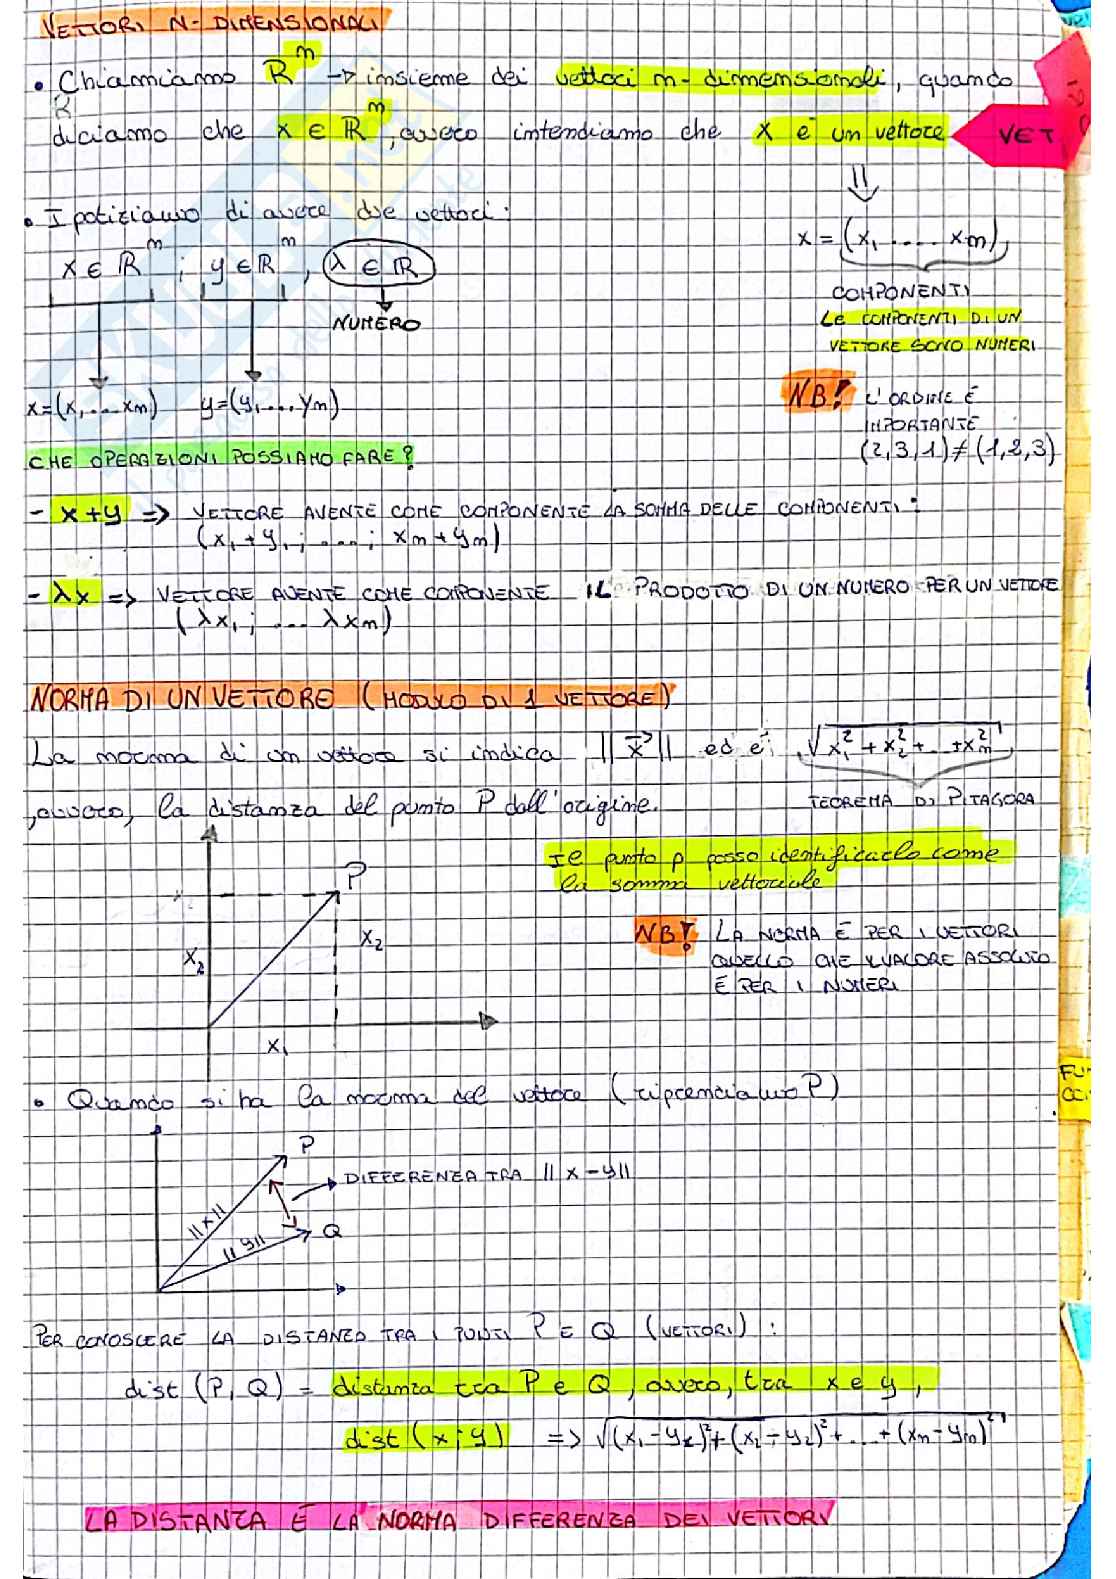 VETTORI N-DIMENSIONALI
• Chiamiamo R^n → insieme dei vettori n-dimensionali, quando
diciamo che x ∈ R^n, ovvero intendiamo che x è un vettore
VET
⇓
x = (x1 ..... xn),
COMPONENTI
LE COMPONENTI DI UN
VETTORE SONO NUMERI
• Ipotiziamo di avere due vettori:
x ∈ R^n ; y ∈ R^n, λ ∈ R
NUMERO
x=(x1 ... xn) y=(y1 ... yn)
NB! L'ORDINE È
IMPORTANTE
(2,3,1) ≠ (1,2,3)
CHE OPERAZIONI POSSIAMO FARE?
- x+y => VETTORE AVENTE COME COMPONENTE LA SOMMA DELLE COMPONENTI:
(x1+y1; ....; xn+yn)
- λx => VETTORE AVENTE COME COMPONENTE IL PRODOTTO DI UN NUMERO PER UN VETTORE
(λx1; ... λxn)
NORMA DI UN VETTORE (MODULO DI 1 VETTORE)
La norma di un vettore si indica ||x→|| ed è √x1²+x2²+...+xn²
TEOREMA DI PITAGORA
,ovvero, la distanza del punto P dall'origine.
Il punto p posso identificarlo come
la somma vettoriale
P
x2
x2
x1
NB! LA NORMA È PER I VETTORI
QUELLO CHE IL VALORE ASSOLUTO
È PER I NUMERI
• Quando si ha la norma del vettore (riprendiamo P)
P
DIFFERENZA TRA ||x-y||
||x||
||y||
Q
PER CONOSCERE LA DISTANZA TRA I PUNTI P E Q (VETTORI):
dist (P, Q) = distanza tra P e Q, ovvero, tra x e y,
dist (x; y) => √(x1-y1)²+(x2-y2)²+...+(xn-yn)²
LA DISTANZA È LA NORMA DIFFERENZA DEI VETTORI
FU